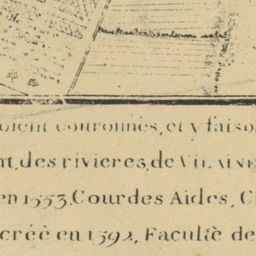 oient couronnés, et y faiso
nt, des rivieres, de VILAINE
en 1553, Cour des Aides, C
créé en 1592, Faculté de